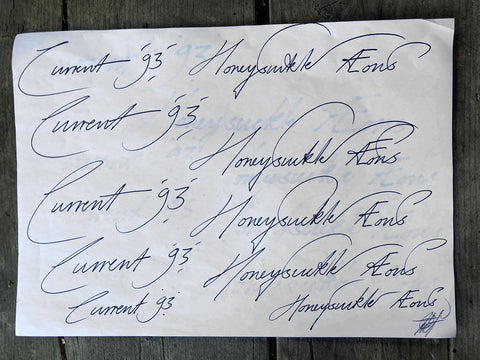 Current '93' Honeysuckle Æons
Current '93' Honeysuckle Æons
Current '93' Honeysuckle Æons
Current '93' Honeysuckle Æons
Current '93' Honeysuckle Æons